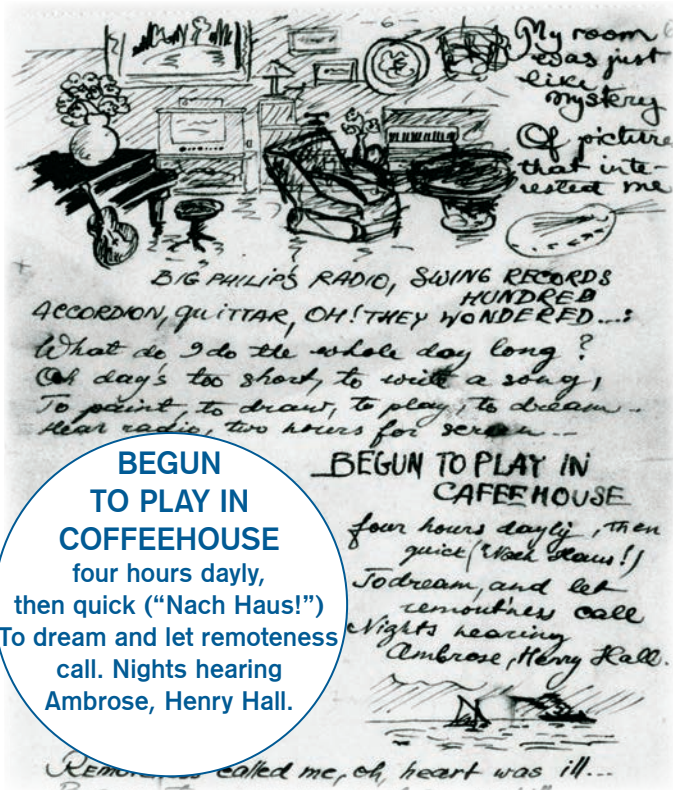 -6-
My room
was just
like
mystery
Of picture
that inte-
rested me
BIG PHILIP'S RADIO, SWING RECORDS
HUNDRED
ACCORDION, QUITTAR, OH! THEY WONDERED...:
What do I do the whole day long?
Oh day's too short, to write a song,
To paint, to draw, to play, to dream...
Hear radio, two hours for scream...
BEGUN TO PLAY IN
CAFEEHOUSE
four hours dayly, then
quick ("Nach Haus!")
To dream, and let
remoutness call
Nights hearing
Ambrose, Henry Hall.
BEGUN
TO PLAY IN
COFFEEHOUSE
four hours dayly,
then quick (“Nach Haus!”)
To dream and let remoteness
call. Nights hearing
Ambrose, Henry Hall.
called me, oh, heart was ill...